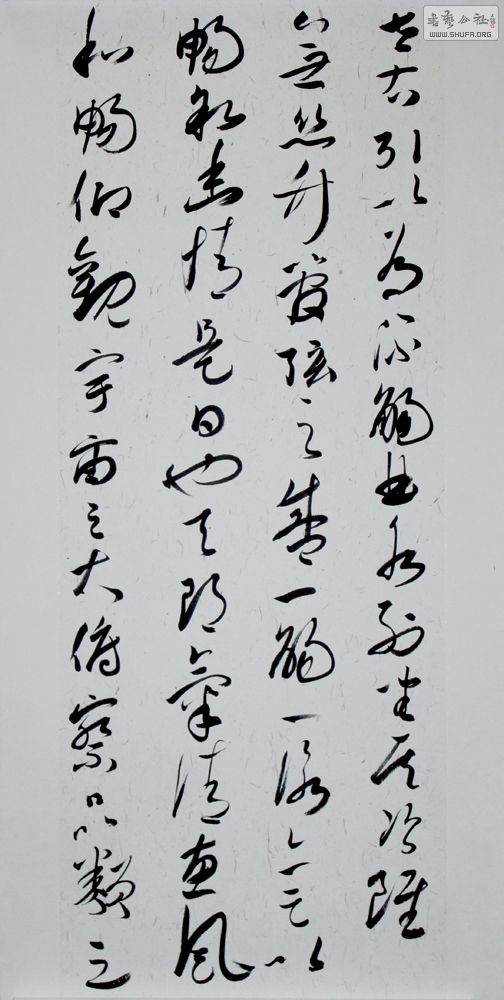 書藝公社
WWW.SHUFA.ORG
左右引以為流觴曲水列坐其次雖
無絲竹管弦之盛一觴一詠亦足以
暢敘幽情是日也天朗氣清惠風
和暢仰觀宇宙之大俯察品類之